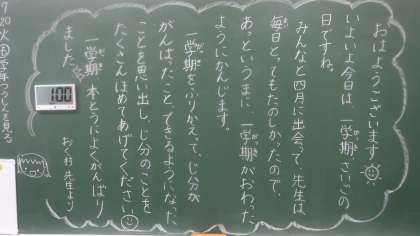 おはようございます
いよいよ今日は、一学期、さいごの
日ですね。
みんなと四月に出会って、先生は、
毎日とってもたのしかったので、
あっというまに、一学期がおわった
ようにかんじます。
一学期をふりかえって、じ分が
がんばったこと、できるようになった
ことを思い出し、じ分のことを
たくさんほめてあげてください
一学期本とうによくがんばり
ました。
おく村先生より
100
7/20火